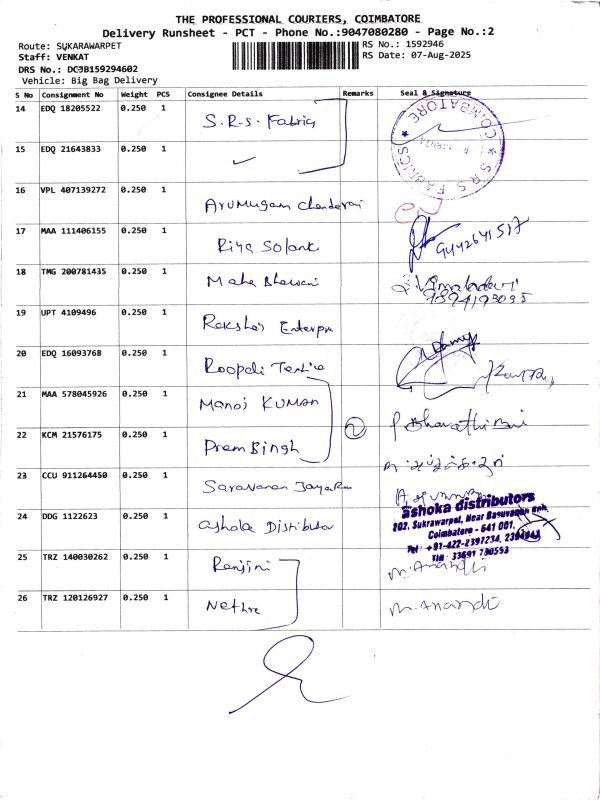 THE PROFESSIONAL COURIERS, COIMBATORE
Delivery Runsheet - PCT - Phone No.:9047080280 - Page No.:2
Route: SUKARAWARPET
RS No.: 1592946
Staff: VENKAT
RS Date: 07-Aug-2025
DRS No.: DCJB159294602
Vehicle: Big Bag Delivery
S No Consignment No Weight PCS Consignee Details Remarks Seal & Signature
14 EDQ 18205522 0.250 1 S.R.S. Fabrics
COIMBATORE
S.R.S FABRICS
15 EDQ 21643833 0.250 1
16 VPL 407139272 0.250 1 Arumugam
17 MAA 111406155 0.250 1 Riya Solanki
18 TMG 200781435 0.250 1 Maha Bhavani
19 UPT 4109496 0.250 1
20 EDQ 16093768 0.250 1 Roopali
21 MAA 578045926 0.250 1 Manoj KUMAR
22 KCM 21576175 0.250 1 Prem Singh 2 P Bharathi Bai
23 CCU 911264450 0.250 1 Saravanan
24 DDG 1122623 0.250 1 ashoka Distributor
ashoka distributors
202, Sukrawarpet, Near
Coimbatore - 641 001.
Tel : +91-422-2397234,
25 TRZ 140030262 0.250 1 Ranjini M. Anandi
26 TRZ 120126927 0.250 1 Nethra M. Anandi